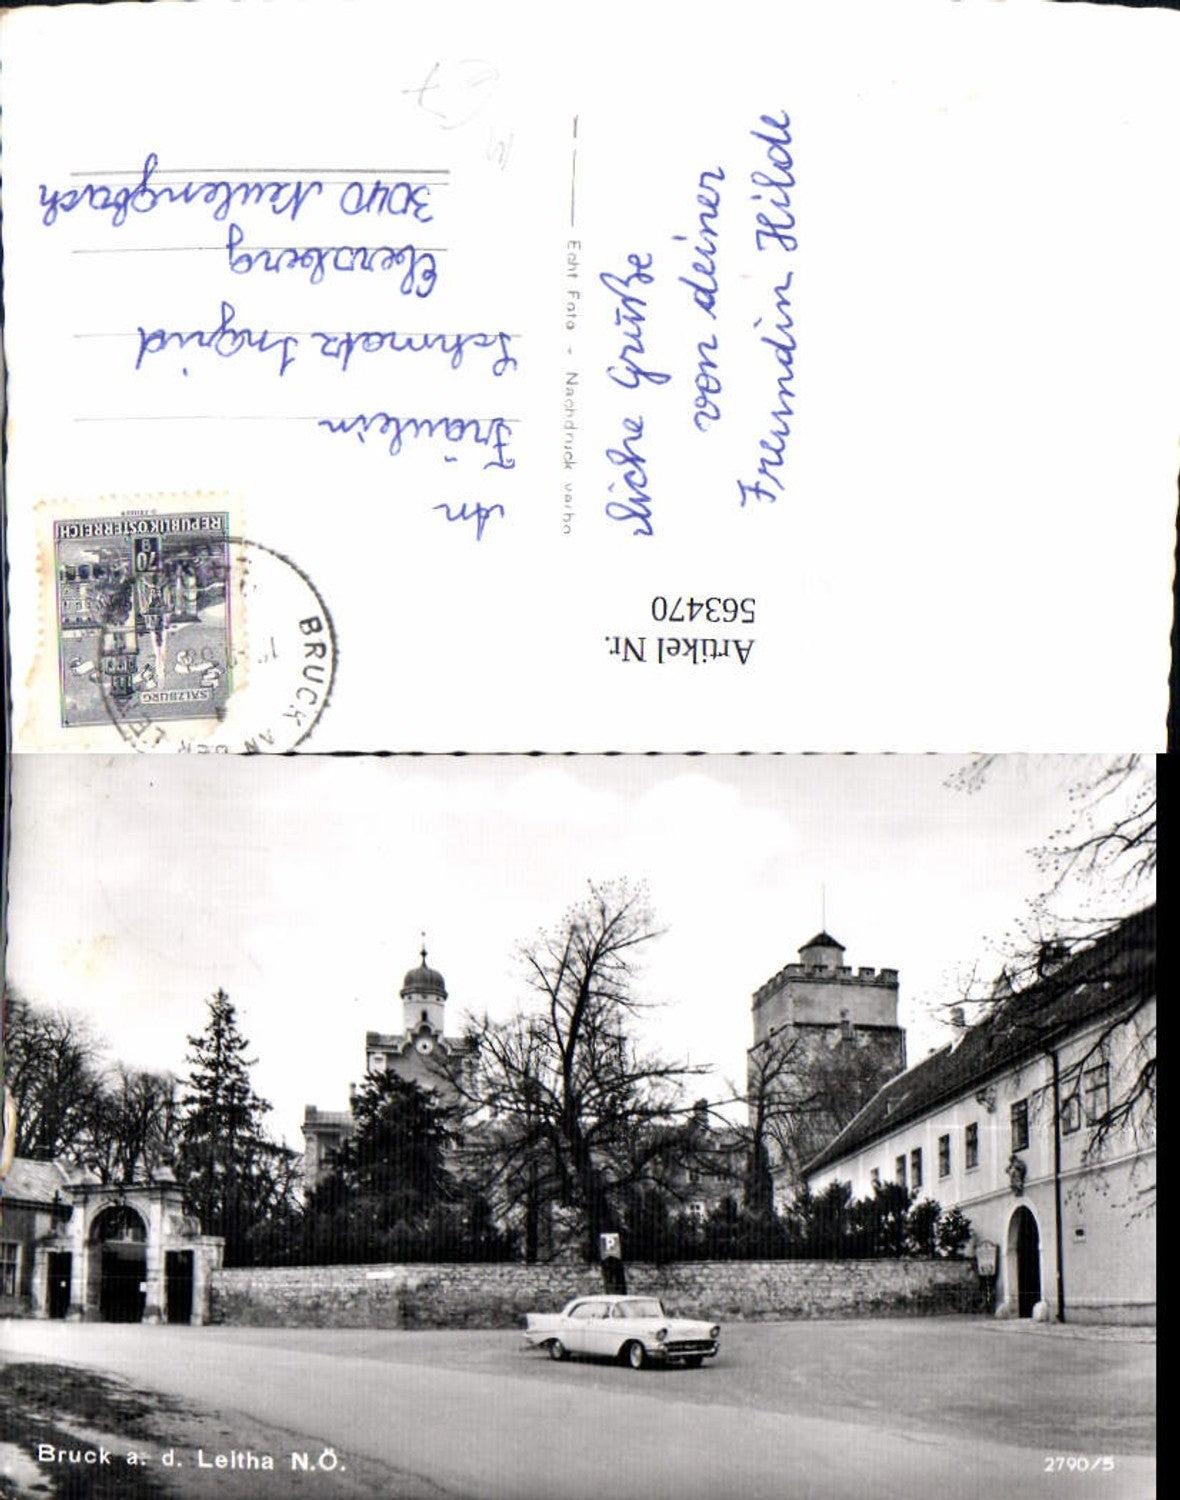 An
Fräulein
Schmatz Ingrid
Ebersberg
3040 Neulengbach
Echt Foto - Nachdruck verbo
liche Grüße
von deiner
Freundin Hilde
Artikel Nr.
563470
REPUBLIK ÖSTERREICH
70
SALZBURG
BRUCK AN DER LE
P
Bruck a. d. Leitha N.Ö.
2790/5